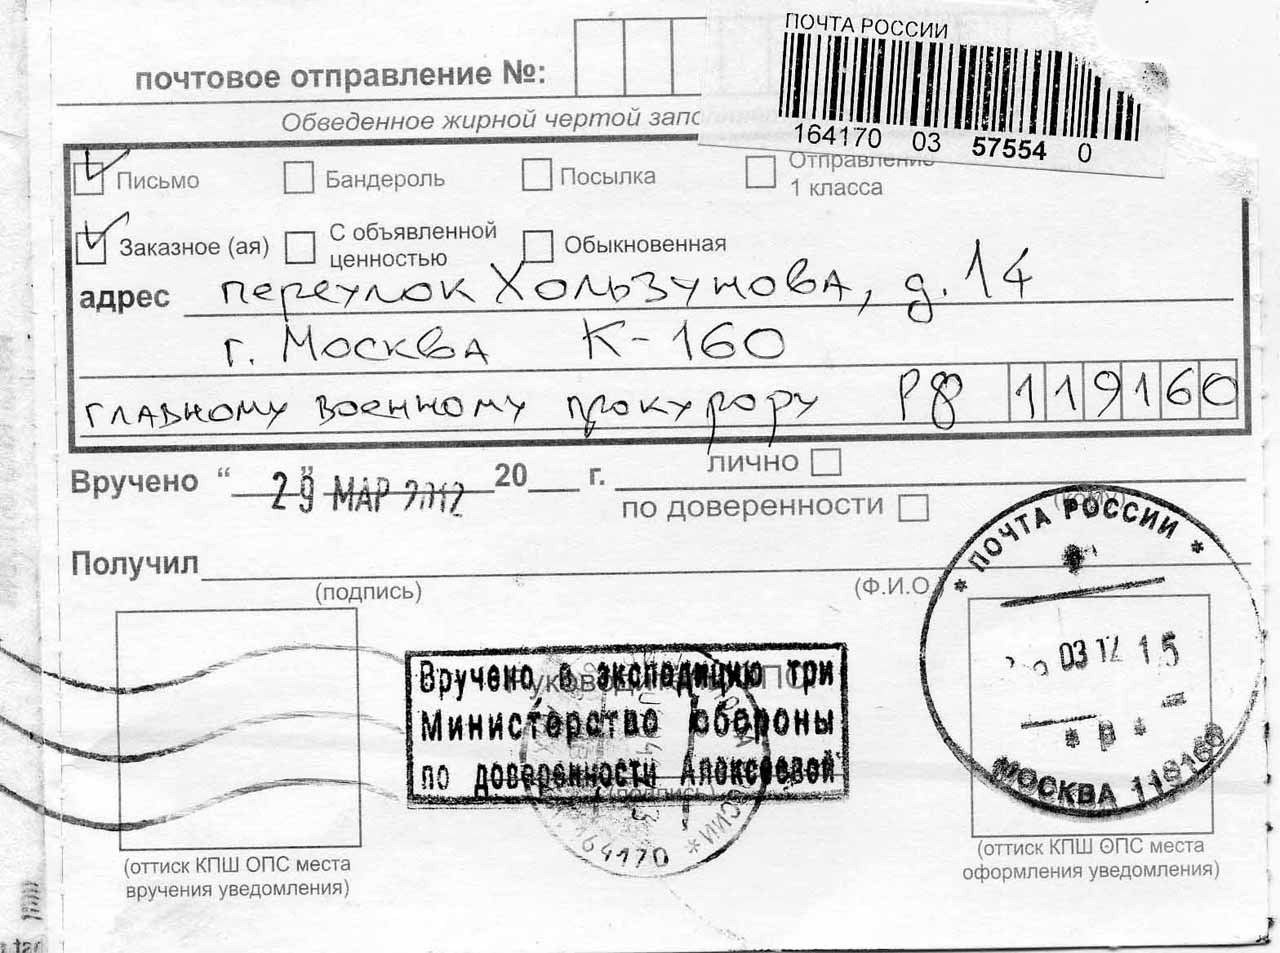 ПОЧТА РОССИИ
164170 03 57554 0
почтовое отправление №:
Обведенное жирной чертой запо
Письмо Бандероль Посылка Отправление 1 класса
Заказное (ая) С объявленной ценностью Обыкновенная
адрес переулок Хользунова, д. 14
г. Москва К-160
главному военному прокурору РФ 119160
Вручено “ 29 ” МАР 2012 20 г. лично
(кому)
по доверенности
Получил
(подпись) (Ф.И.О
* ПОЧТА РОССИИ *
03 12 15
МОСКВА 119160
Вручено в экспедицию три
Министерство обороны
по доверенности Алексеевой
(подпись)
РОССИИ *
164170
(оттиск КПШ ОПС места
вручения уведомления)
(оттиск КПШ ОПС места
оформления уведомления)